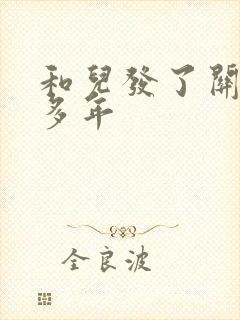 和兒發了關
多年
全良波